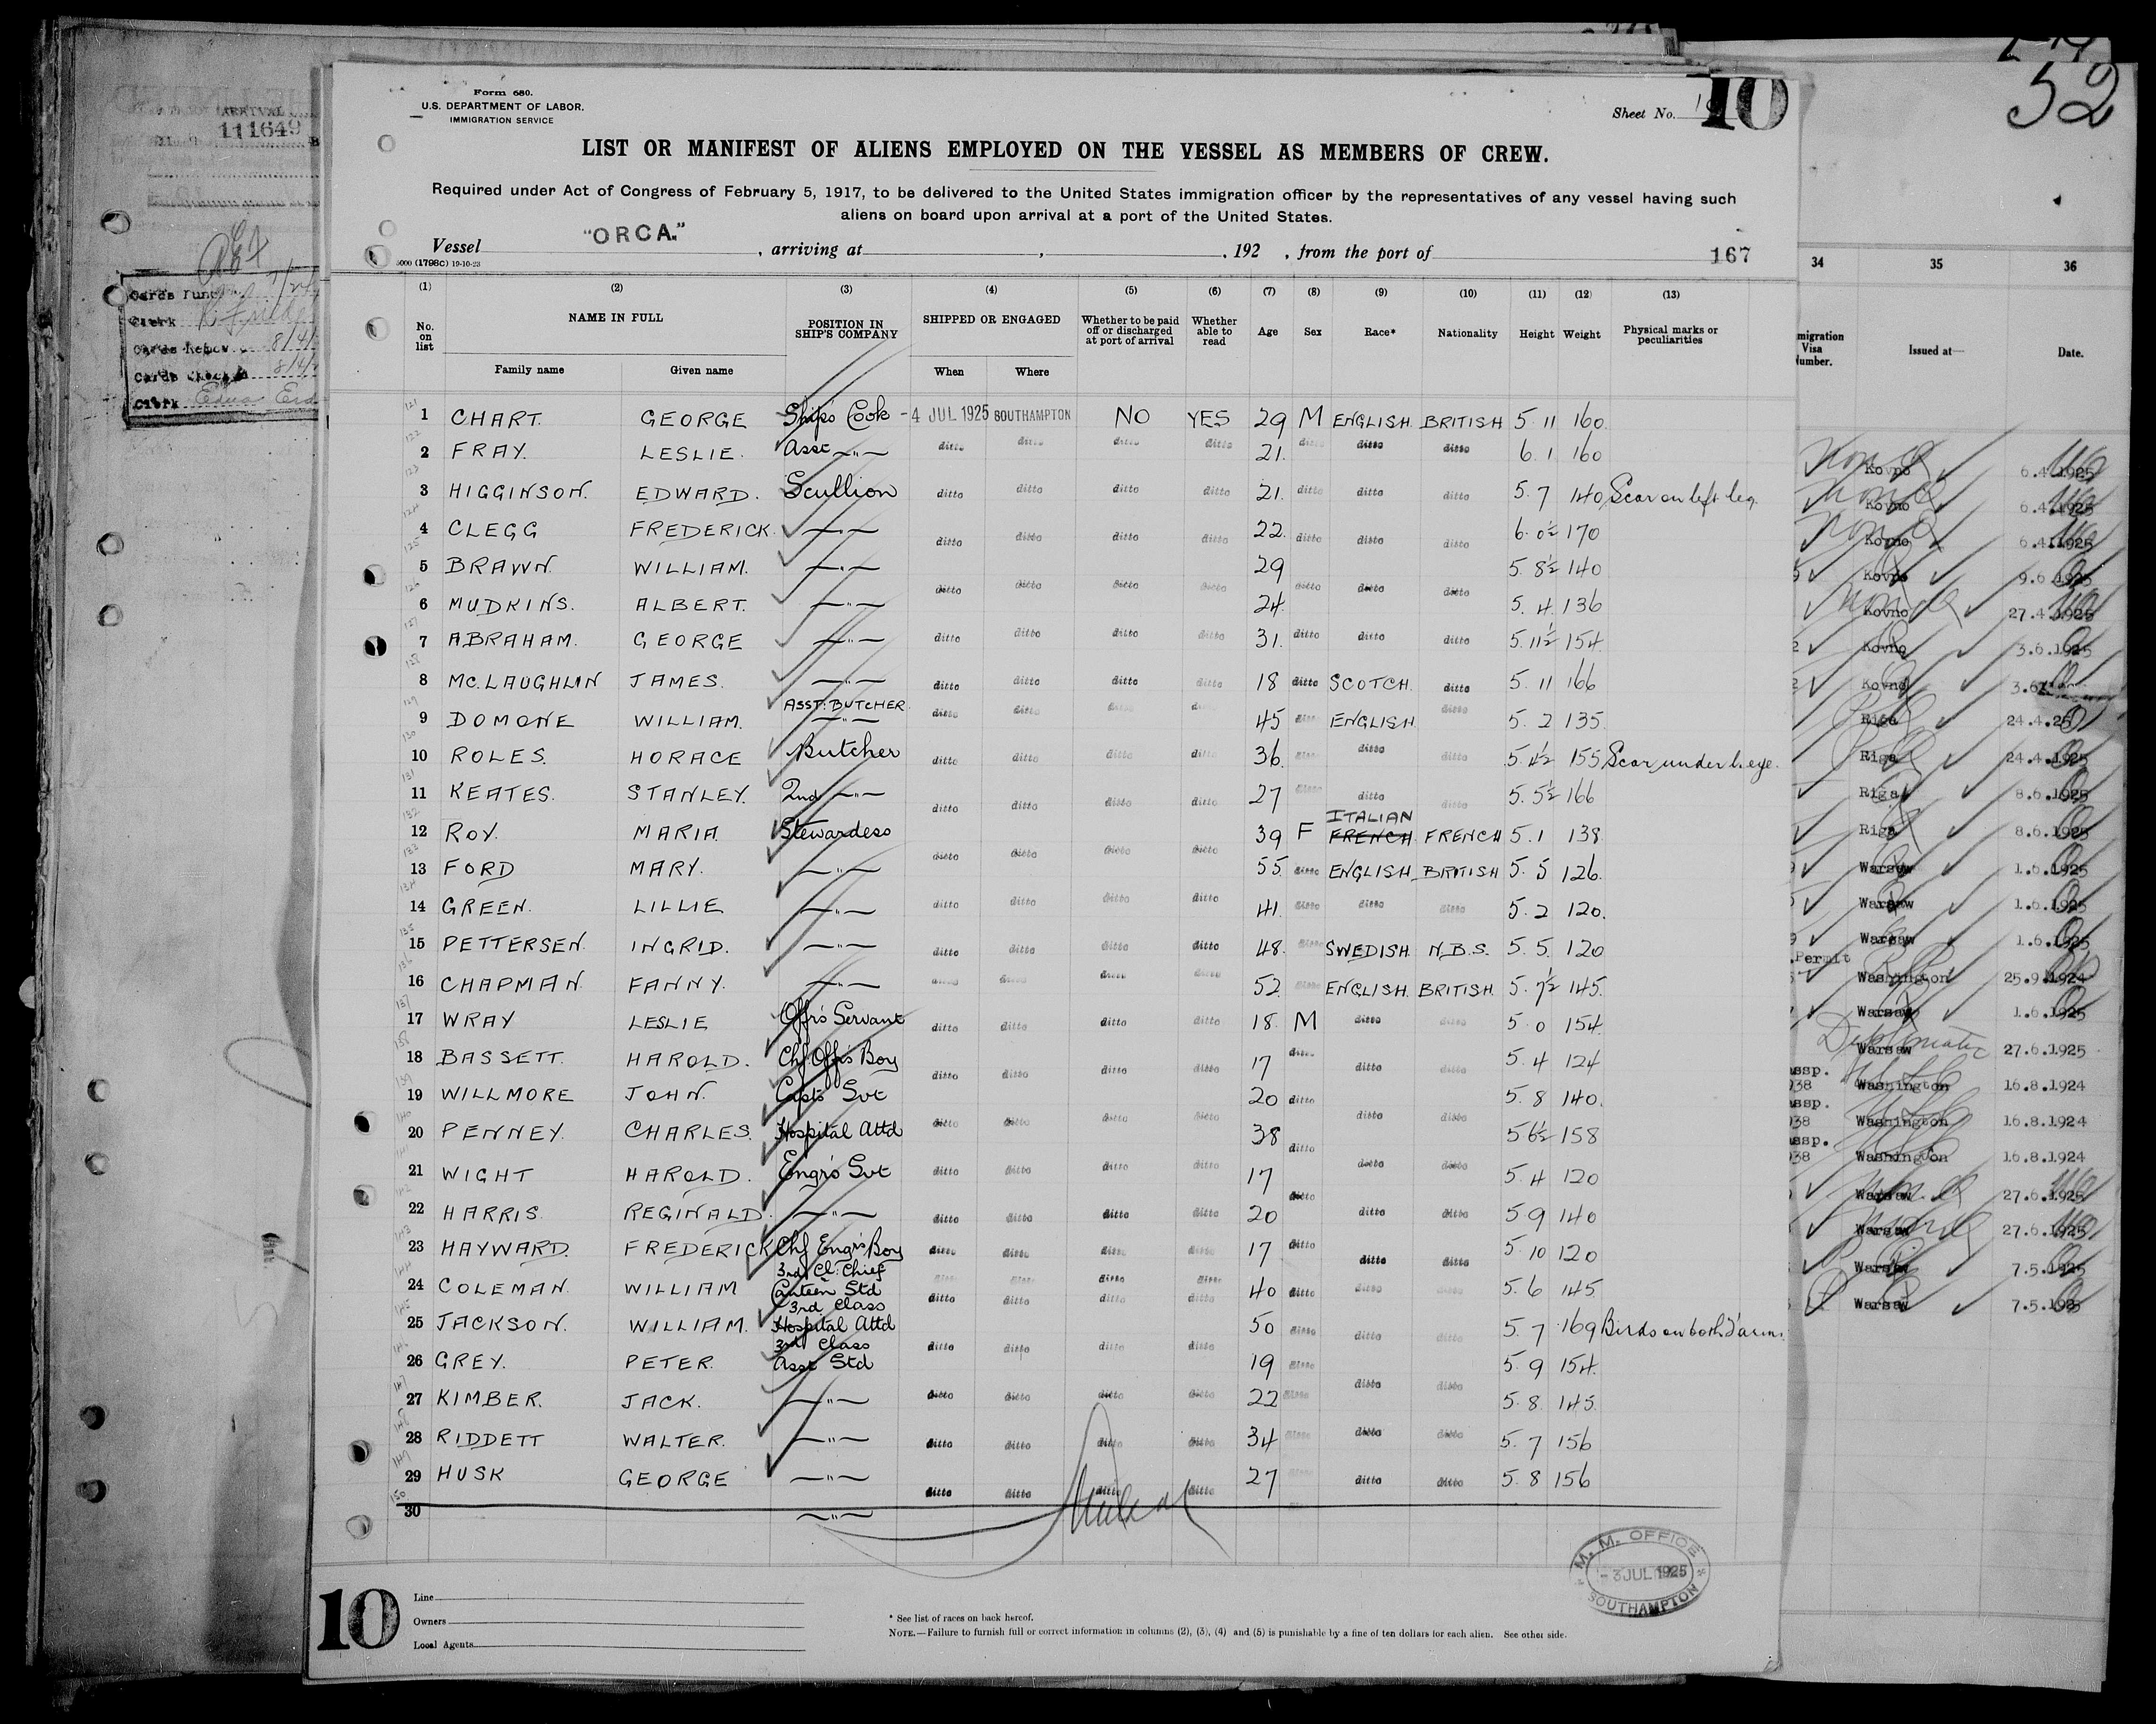 52
ARRIVAL
111649
Form 680.
U.S. DEPARTMENT OF LABOR.
IMMIGRATION SERVICE
Sheet No. 10
LIST OR MANIFEST OF ALIENS EMPLOYED ON THE VESSEL AS MEMBERS OF CREW.
Required under Act of Congress of February 5, 1917, to be delivered to the United States immigration officer by the representatives of any vessel having such
aliens on board upon arrival at a port of the United States.
Vessel "ORCA." , arriving at , , 192 , from the port of 167
5000 (1798C) 19-10-23
(1) (2) (3) (4) (5) (6) (7) (8) (9) (10) (11) (12) (13)
No. on list NAME IN FULL POSITION IN SHIP'S COMPANY SHIPPED OR ENGAGED Whether to be paid off or discharged at port of arrival Whether able to read Age Sex Race* Nationality Height Weight Physical marks or peculiarities
Family name Given name When Where
1 CHART. GEORGE Ship's Cook -4 JUL 1925 SOUTHAMPTON NO YES 29 M ENGLISH. BRITISH 5 11 160.
2 FRAY. LESLIE. Asst —"— ditto ditto ditto ditto 21. ditto ditto ditto 6. 1 160
3 HIGGINSON. EDWARD. Scullion ditto ditto ditto ditto 21. ditto ditto ditto 5. 7 140 Scar on left leg.
4 CLEGG FREDERICK. —"— ditto ditto ditto ditto 22. ditto ditto ditto 6. 0½ 170
5 BRAWN. WILLIAM. —"— 29 5. 8½ 140
6 MUDKINS. ALBERT. —"— ditto ditto ditto ditto 24. ditto ditto ditto 5. 4. 136
7 ABRAHAM. GEORGE —"— ditto ditto ditto ditto 31. ditto ditto ditto 5. 11½ 154.
8 MC.LAUGHLIN JAMES. —"— ditto ditto ditto ditto 18 ditto SCOTCH. ditto 5. 11 166
9 DOMONE WILLIAM. ASST: BUTCHER —"— ditto ditto ditto ditto 45 ditto ENGLISH. ditto 5. 2 135.
10 ROLES. HORACE Butcher ditto ditto ditto ditto 36. ditto ditto ditto 5. 4½ 155 Scar under L. eye.
11 KEATES. STANLEY. 2nd —"— ditto ditto ditto ditto 27 ditto ditto ditto 5. 5½ 166
12 ROY. MARIA. Stewardess 39 F ITALIAN FRENCH FRENCH 5. 1 138.
13 FORD MARY. —"— ditto ditto ditto ditto 55 ditto ENGLISH. BRITISH 5. 5 126.
14 GREEN. LILLIE —"— ditto ditto ditto ditto 41. ditto ditto ditto 5. 2 120.
15 PETTERSEN. INGRID. —"— ditto ditto ditto ditto 48. ditto SWEDISH N.B.S. 5. 5. 120
16 CHAPMAN. FANNY. —"— ditto ditto ditto ditto 52. ditto ENGLISH. BRITISH. 5. 7½ 145.
17 WRAY LESLIE Offrs Servant ditto ditto ditto ditto 18. M ditto ditto 5. 0 154.
18 BASSETT. HAROLD. Chf Offr's Boy ditto ditto ditto ditto 17 ditto ditto ditto 5. 4 124
19 WILLMORE JOHN. Capts Svt 20 ditto 5. 8 140.
20 PENNEY. CHARLES. Hospital Attd ditto ditto ditto ditto 38 ditto ditto ditto 5 6½ 158
21 WIGHT HAROLD. Engrs Svt ditto ditto ditto ditto 17 ditto ditto ditto 5. 4 120
22 HARRIS. REGINALD. —"— ditto ditto ditto ditto 20 ditto ditto 5. 9 140
23 HAYWARD. FREDERICK Chf Engrs Boy ditto ditto ditto ditto 17 ditto ditto ditto 5. 10 120
24 COLEMAN. WILLIAM 3rd Cl: Chief Canteen Std ditto ditto ditto ditto 40 ditto ditto ditto 5. 6 145.
25 JACKSON. WILLIAM. 3rd Class Hospital Attd ditto ditto ditto ditto 50 ditto ditto ditto 5. 7 169 Birds on both f'arms.
26 GREY. PETER. 3rd Class Asst Std ditto ditto ditto ditto 19 ditto 5. 9 154.
27 KIMBER. JACK. —"— ditto ditto ditto ditto 22 ditto ditto ditto 5. 8. 145.
28 RIDDETT WALTER. —"— ditto ditto ditto ditto 34 ditto ditto ditto 5. 7 156
29 HUSK GEORGE —"— ditto ditto ditto ditto 27 ditto ditto 5. 8 156
30 —"—
M. M. OFFICE
-3 JUL 1925
SOUTHAMPTON
10
Line
Owners
Local Agents
* See list of races on back hereof.
NOTE.—Failure to furnish full or correct information in columns (2), (3), (4) and (5) is punishable by a fine of ten dollars for each alien. See other side.
34 35 36
migration Visa Number. Issued at— Date.
Kovno 6.4.1925
Kovno 6.4.1925
Kovno 6.4.1925
Kovno 9.6.1925
Kovno 27.4.1925
Kovno 3.6.1925
Kovno 3.6.
Riga 24.4.25
Riga 24.4.1925
Riga 8.6.1925
Riga 8.6.1925
Warsaw 1.6.1925
Warsaw 1.6.1925
Warsaw 1.6.1925
Permit
Washington 25.9.1924
Warsaw 1.6.1925
Diplomatic
Warsaw 27.6.1925
assp.
938 Washington 16.8.1924
assp.
938 Washington 16.8.1924
assp.
938 Washington 16.8.1924
Warsaw 27.6.1925
Warsaw 27.6.1925
Warsaw 7.5.1925
Warsaw 7.5.192